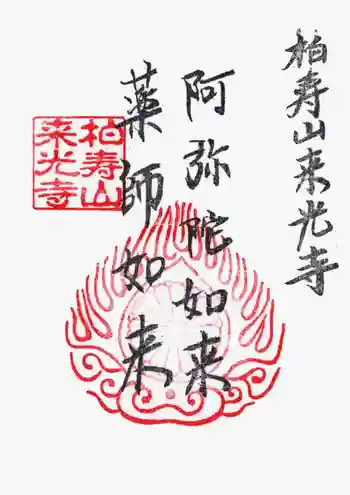 柏寿山来光寺
阿弥陀如来
薬師如来
柏寿山
来光寺